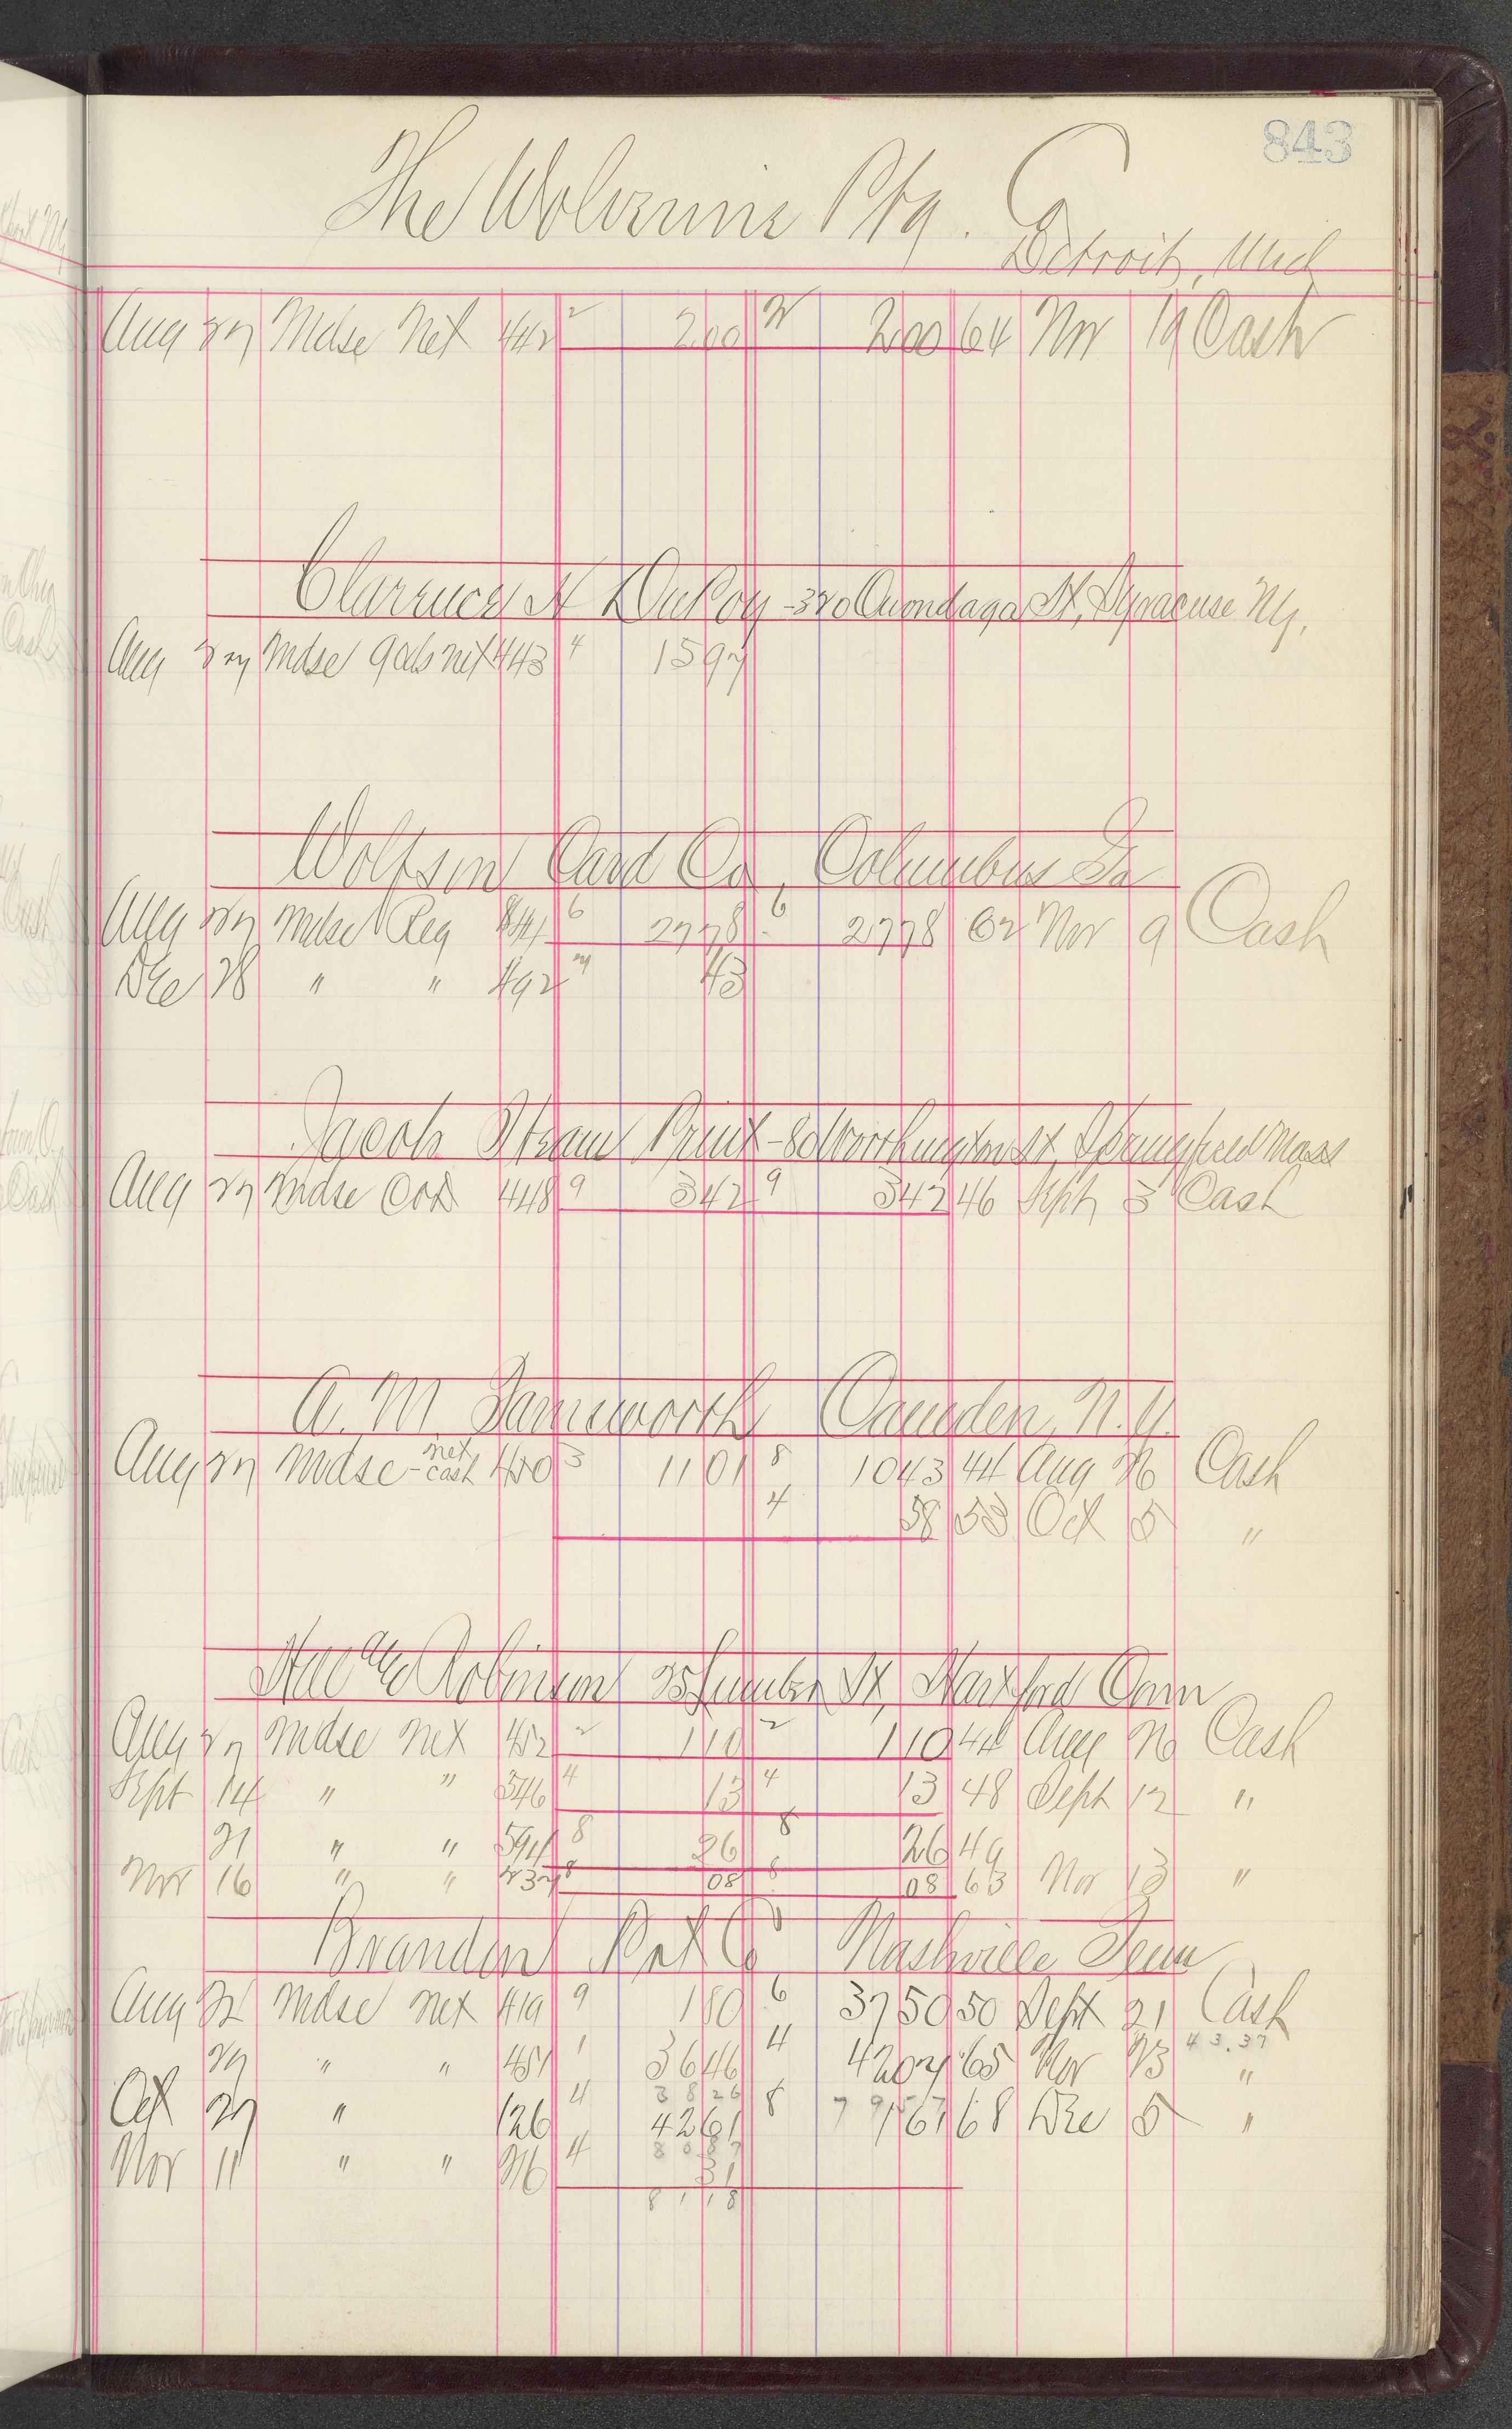 843
The Wolverine Ptg. Co
Detroit, Mich
Aug 27 Mdse Net 442 2 200 2 200 64 Nov 19 Cash
Clarence H DuPoy - 320 Onondaga St, Syracuse Ny.
Aug 27 Mdse 90ds net 443 4 1597
Wolfson Card Co, Columbus Ga
Aug 27 Mdse Reg 441 6 2778 6 2778 62 Nov 9 Cash
Dec 28 " " 492 43
Jacob Steam Print - 80 Worthington St, Springfield Mass
Aug 27 Mdse Cod 448 9 342 9 342 46 Sept 3 Cash
A. M. Farnsworth Camden, N.Y.
Aug 27 Mdse - net cash 450 3 1101 8 1043 44 Aug 26 Cash
4 58 53 Oct 5 "
Robinson 25 St, Hartford Conn
Aug 27 Mdse Net 452 2 110 2 110 44 Aug 26 Cash
Sept 14 " " 346 4 13 4 13 48 Sept 12 "
21 " " 594 8 26 8 26 49
Nov 16 " " 237 8 08 8 08 63 Nov 13 "
Brandon Prt Co Nashville Tenn
Aug 22 Mdse Net 419 9 180 6 3750 50 Sept 21 Cash
27 " " 451 1 3646 4 4207 65 Nov 23 43.37 "
3826
Oct 27 " 126 4 4261 8 161 68 Dec 5 "
8087
Nov 11 " " 26 4 31
8118